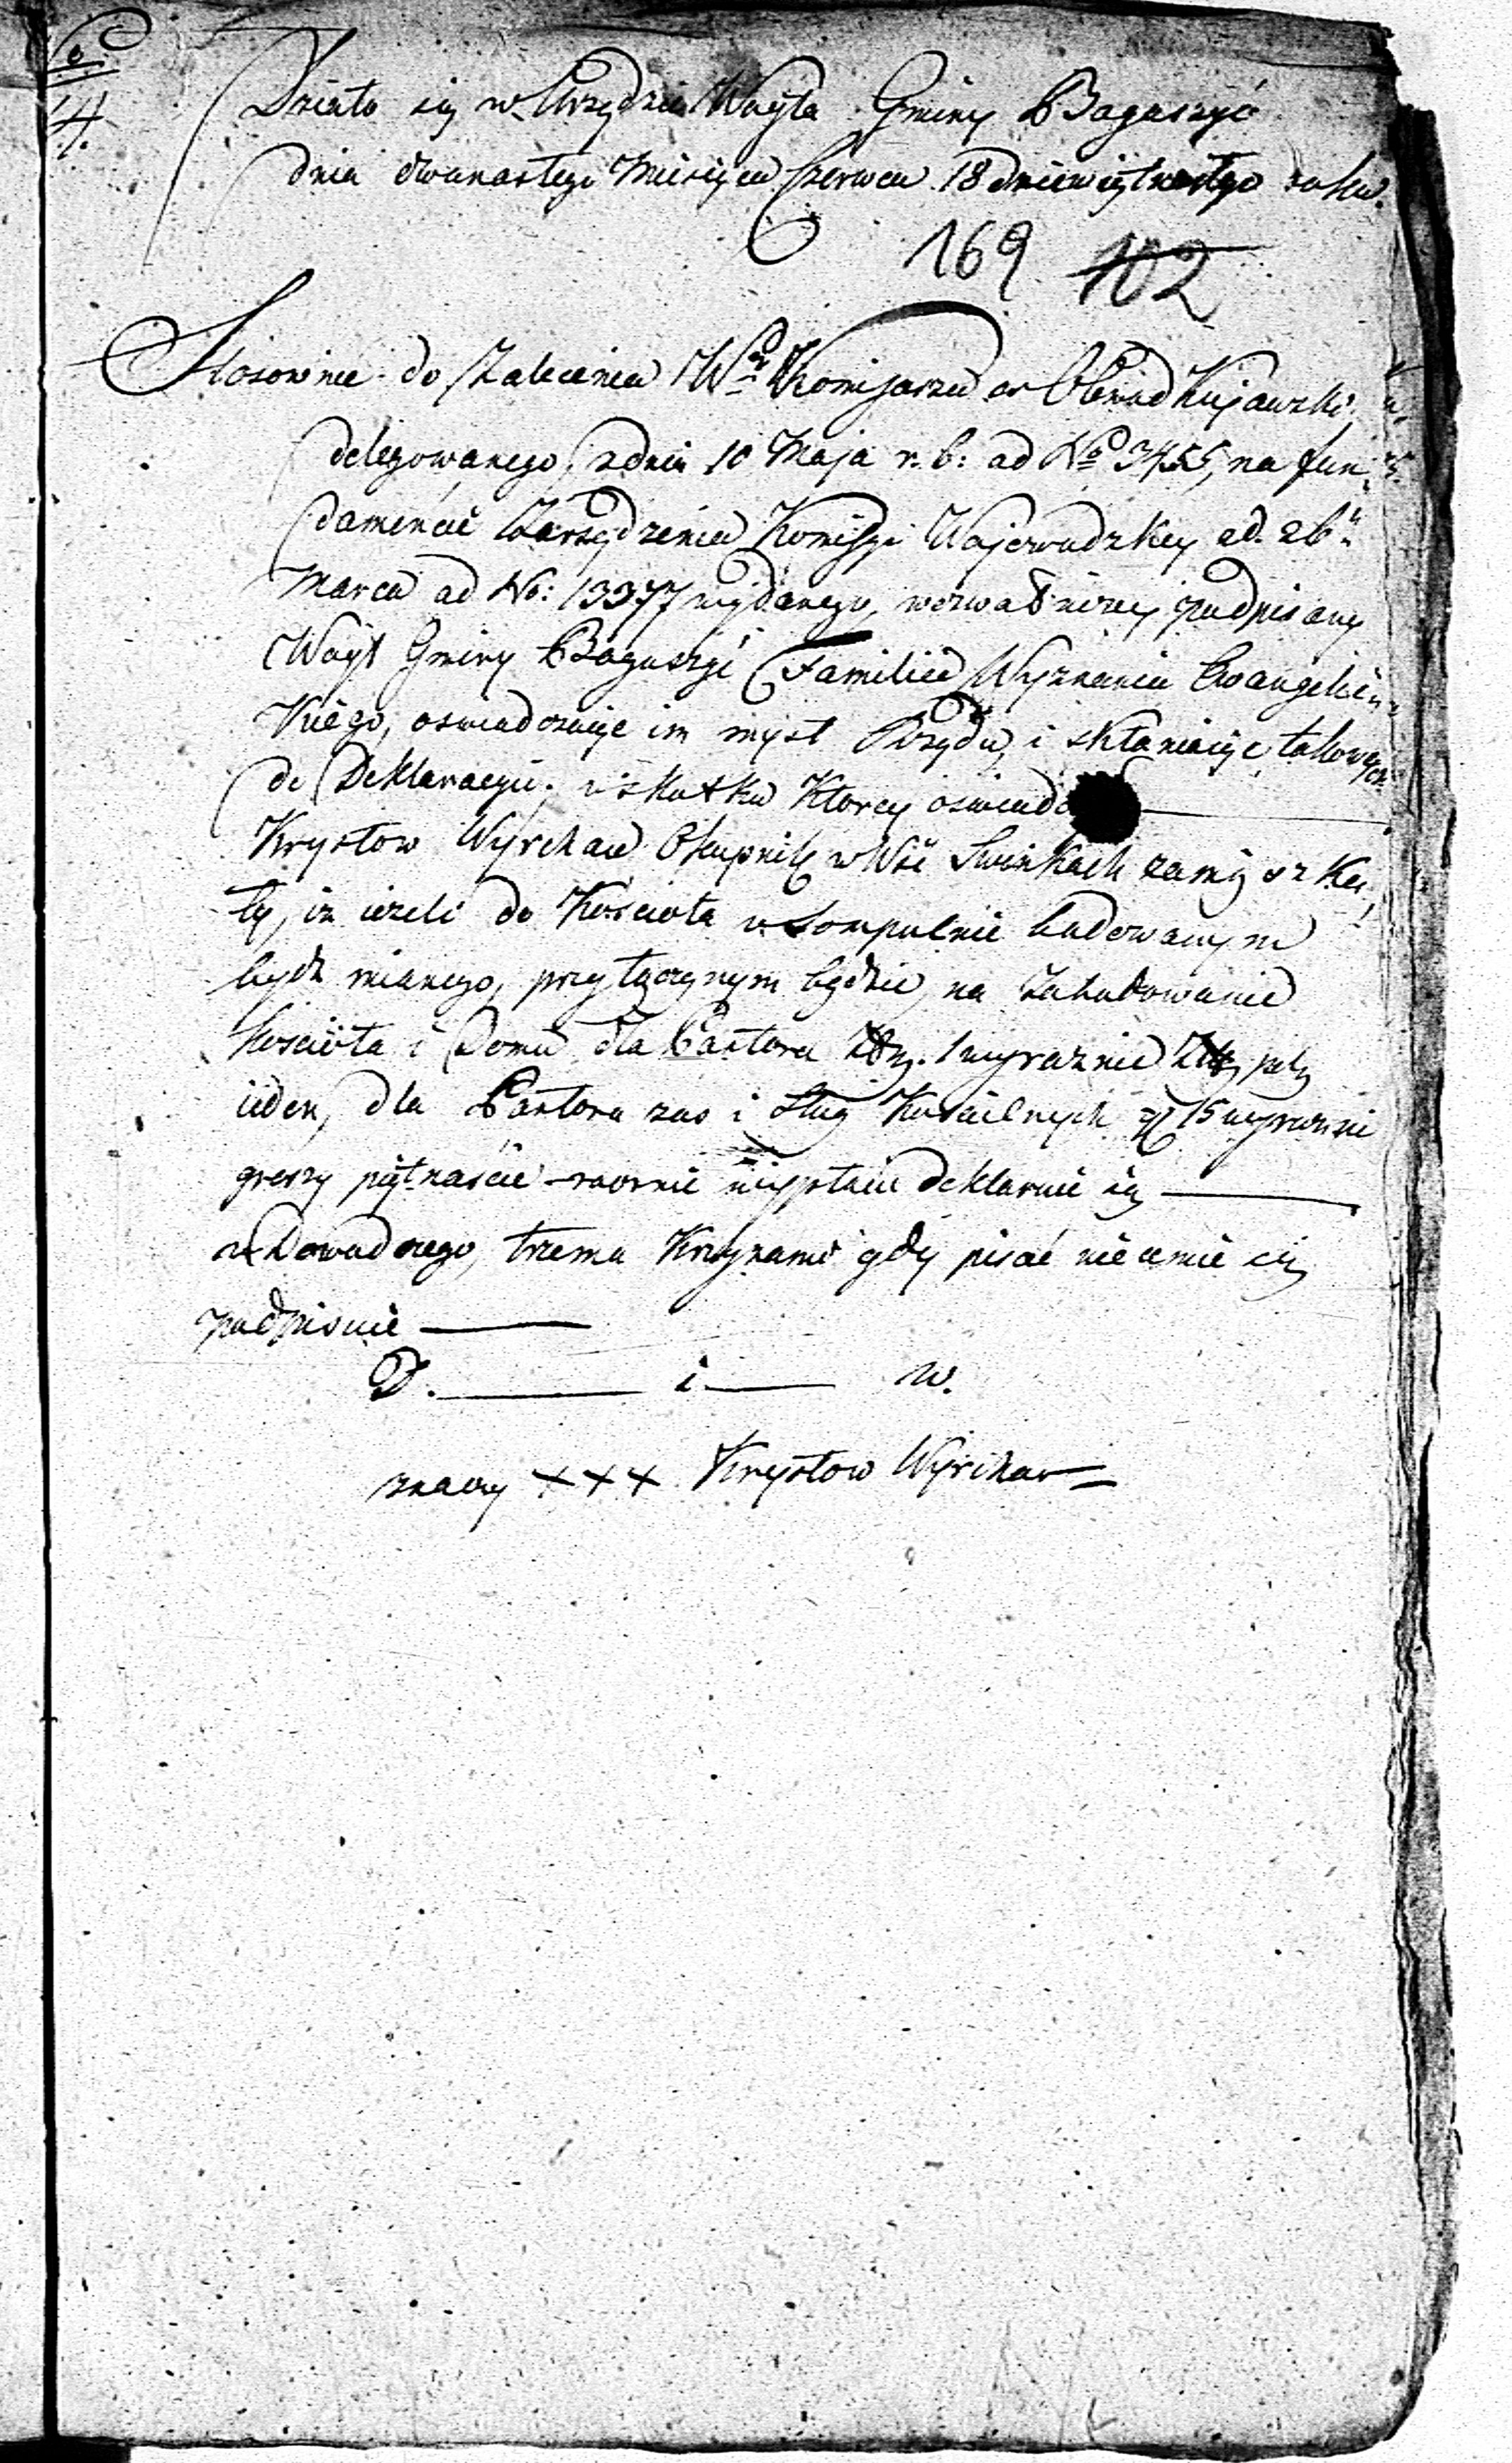 14.
Działo się w Urzędzie Wóyta Gminy Boguszyć
dnia dwunastego Miesiąca Czerwca 18 dziewiętnastego roku.
169 102
Stosownie do Zalecenia Wgo Kommissarza w Obwód Kujawski
delegowanego, z dnia 10 Maja r. b: ad No 3455, na fun-
damencie Zarządzenia Kommissyi Wojewudzkiey z d. 26
Marca ad No: 13377 wydanego, wezwał niżey podpisany
Wóyt Gminy Boguszyć Familiie Wyznania Ewangelic-
kiego, oswiadczaiąc im myśl Rządu, i skłaniaiąc takowych
do Deklaracyi; w skutku ktorey oswiadc
Krysztow Wyrchaw Okupnik w Wsi Swinkach zamieszka-
ły, iż ieżeli do Kościoła w Sompolnie budowanym
bydź mianego, przyłączonym będzie, na Zabudowanie
Kościoła i Domu dla Pastora 1 wyraznie Złty pol:
ieden, dla Pastora zas i Sług Kościelnych gr 15 wyraznie
groszy piętnaście rocznie wypłacać deklaruie się
na Dowód czego, trzema Krzyżami gdy pisać nieumie się
podpisuie
D. i w.
znaczy +++ Krysztow Wyrchaw